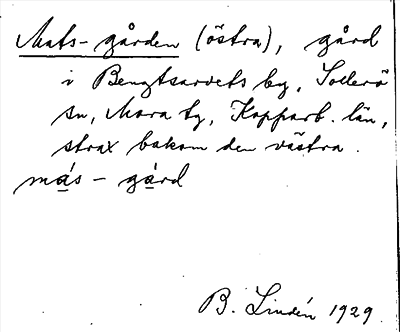 Mats-gården (östra), gård
i Bengtsarvets by, Sollerö
sn, Mora tg, Kopparb. län,
strax bakom den västra.
más - gård
B. Lindén 1929